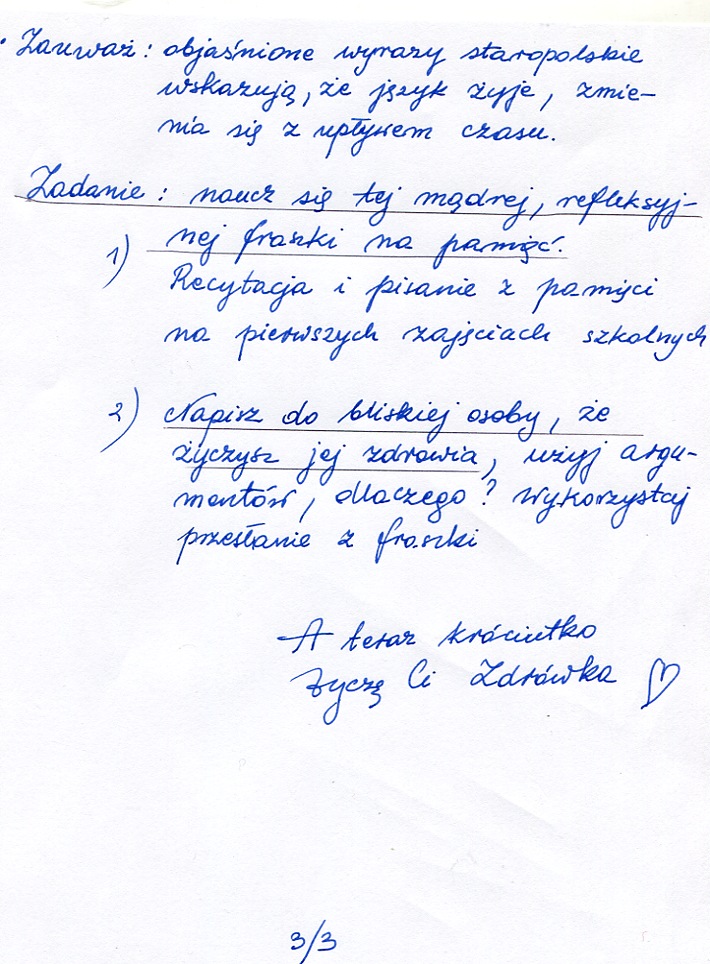 • Zauważ: objaśnione wyrazy staropolskie
wskazują, że język żyje, zmie-
nia się z upływem czasu.
Zadanie: naucz się tej mądrej, refleksyj-
1) nej fraszki na pamięć.
Recytacja i pisanie z pamięci
na pierwszych zajęciach szkolnych
2) Napisz do bliskiej osoby, że
życzysz jej zdrowia, użyj argu-
mentów, dlaczego? Wykorzystaj
przesłanie z fraszki
A teraz króciutko
życzę Ci Zdrówka ♡
3/3